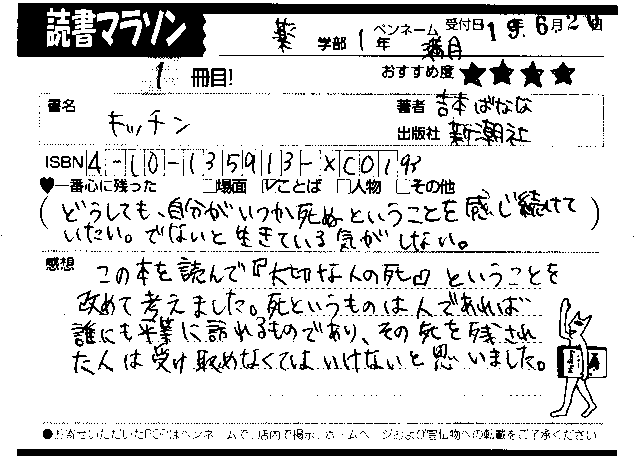 読書マラソン
薬 学部 1年 ペンネーム 満月 受付日 19年6月20日
1 冊目! おすすめ度 ★★★★
書名 キッチン
著者 吉本ばなな
出版社 新潮社
ISBN 4-10-135913-X C0193
♥一番心に残った □場面 ☑ことば □人物 □その他
(どうしても、自分がいつか死ぬということを感じ続けて
いたい。でないと生きている気がしない。)
感想 この本を読んで『大切な人の死』ということを
改めて考えました。死というものは人であれば
誰にも平等に訪れるものであり、その死を残され
た人は受け取めなくてはいけないと思いました。
●お寄せいただいたPOPはペンネームで、店内で掲示、ホームページおよび宣伝物への転載をご了承ください